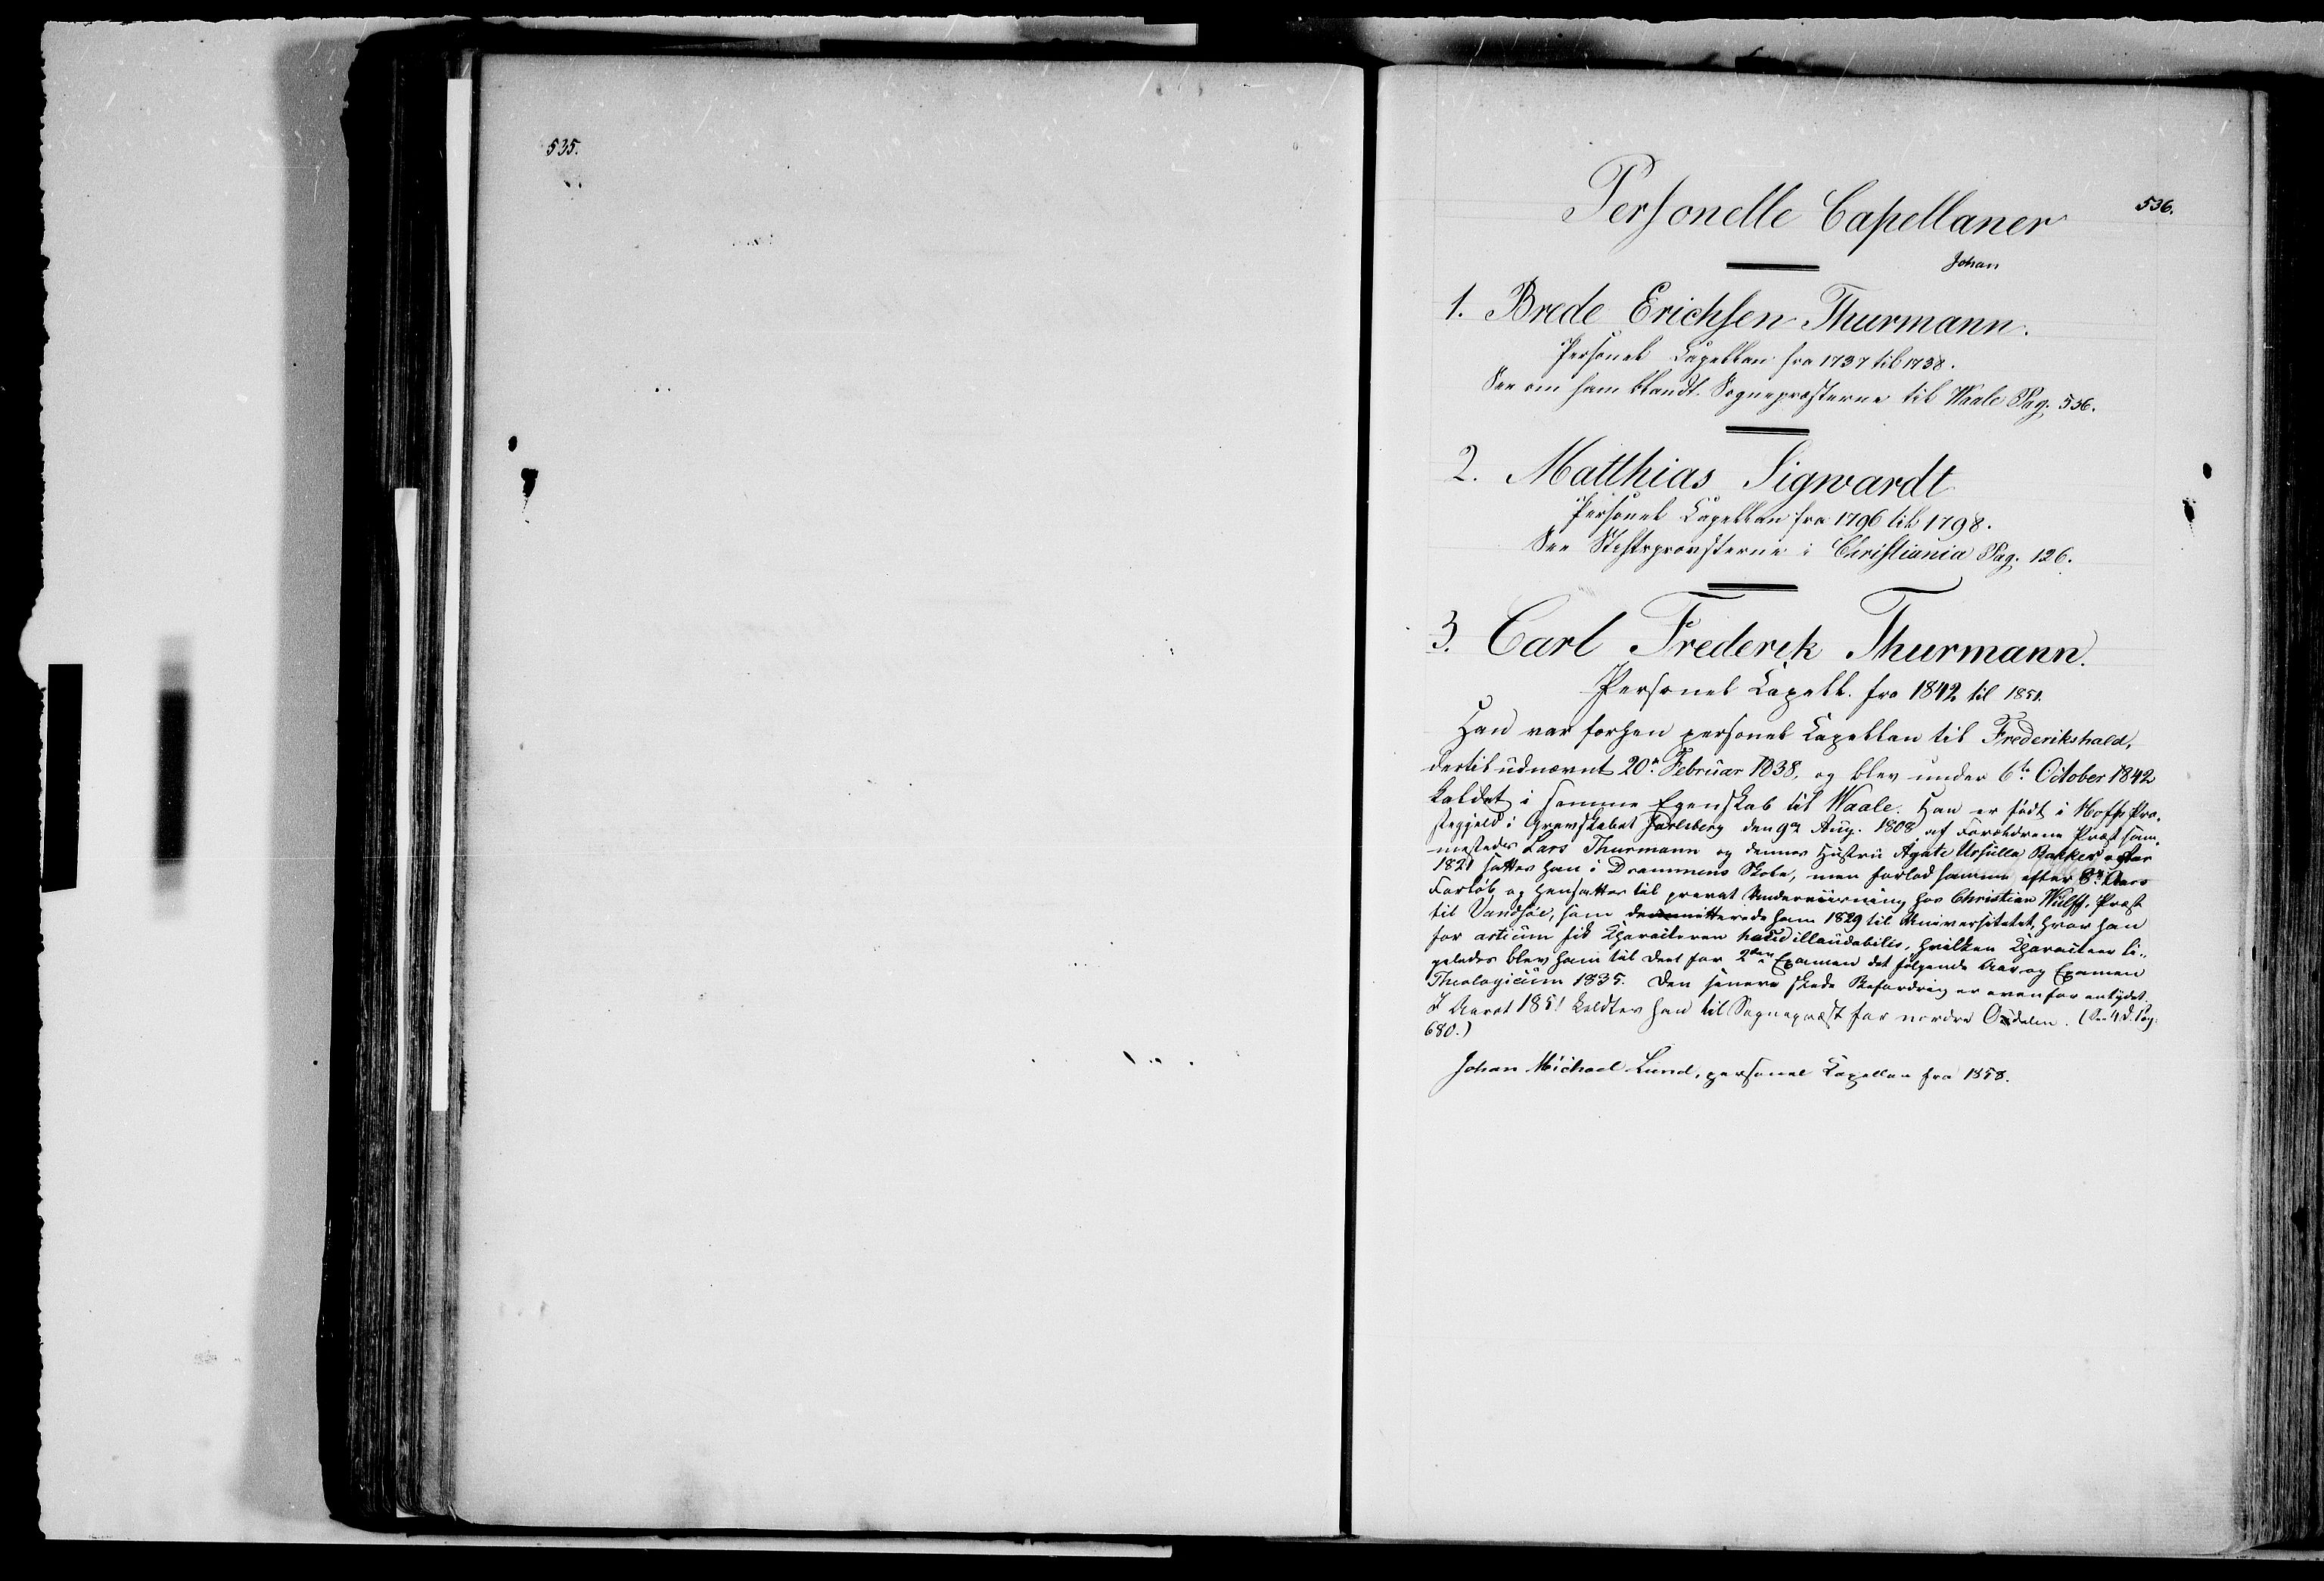 535.
536.
Personelle Capellaner
Johan
1. Brede Erichsen Thurmann.
Personel Capellan fra 1737 til 1738.
See om ham blandt Sognepræsterne til Waale Pag. 536.
2. Matthias Sigwardt
Personel Capellan fra 1796 til 1798.
See Stiftsprovsterne i Christiania Pag. 126.
3. Carl Frederik Thurmann.
Personel Capell. fra 1842 til 1851.
Han var forhen personel Capellan til Frederikshald,
dertil udnævnt 20. Februar 1838, og blev under 6te October 1842
kaldet i samme Egenskab til Waale. Han er født i Hoffs Præ-
stegjeld i Grevskabet Jarlsberg den 9de Aug. 1808 af Forældrene Præst sam-
mestedes Lars Thurmann og dennes Hustru Agate Ursulla Bakker
1821 sattes han i Drammens Skole, men forlod samme efter 3 Aars
Forløb og hensattes til privat Underviisning hos Christian Wulff, Præst
til Sandsøe, som demitterede ham 1829 til Universitetet, hvor han
for artium fik Characteren haud illaudabilis, hvilken Character li-
geledes blev ham til Deel for 2den Examen det følgende Aar og Examen
Theologicum 1835. Den senere skede Befordring er ovenfor antydet.
I Aaret 1851 kaldtes han til Sognepræst for nordre Odalen. (See 4. D. Pag.
680.)
Johan Michael Lund, personel Capellan fra 1858.